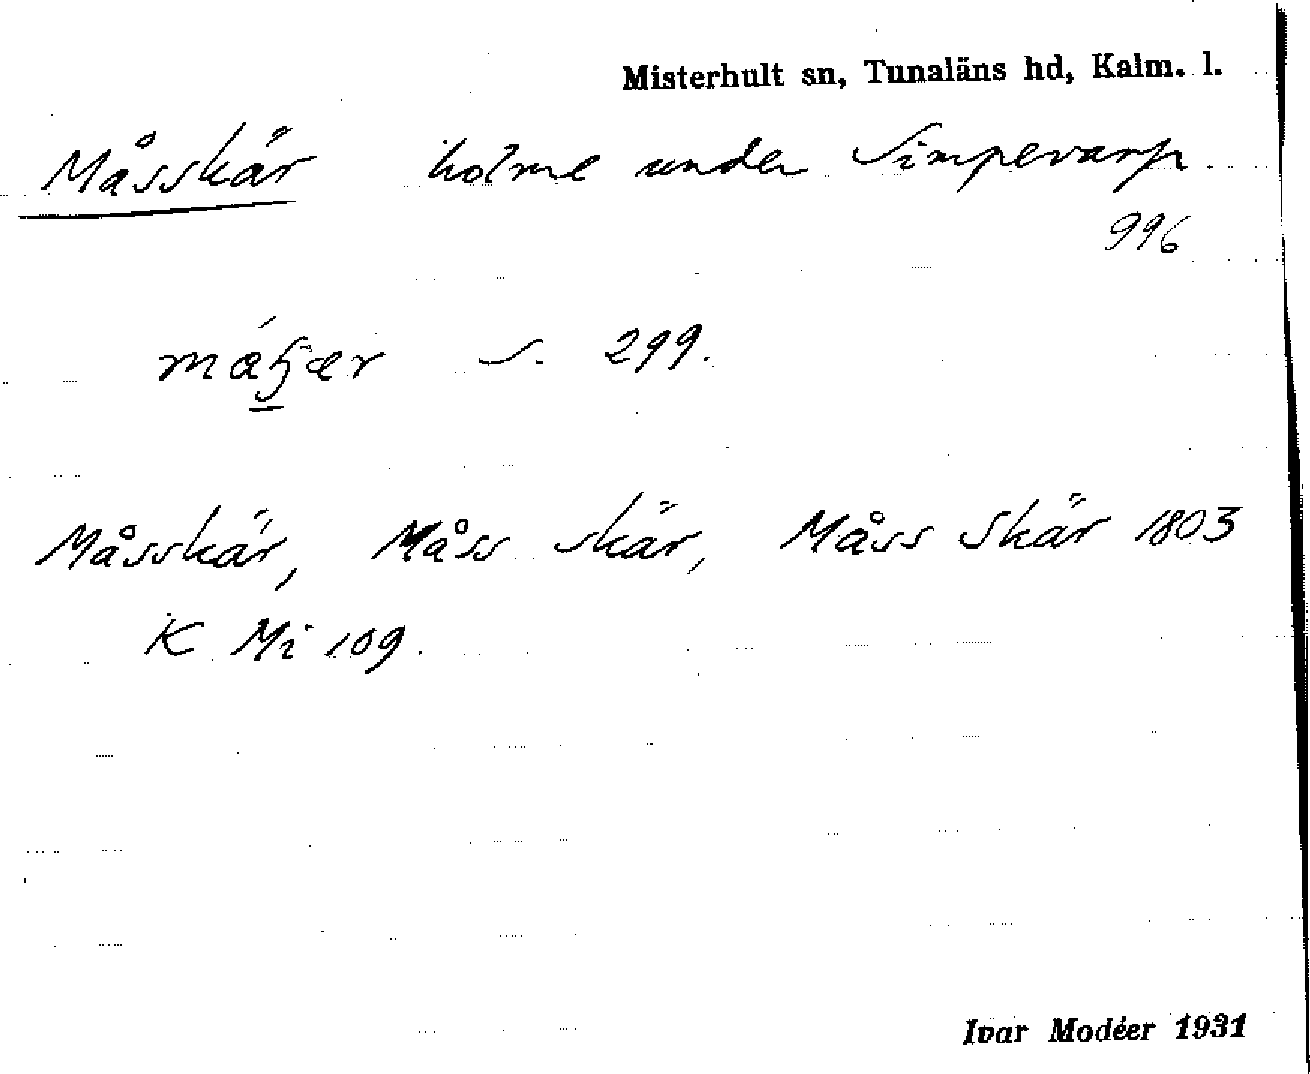 Misterhult sn, Tunaläns hd, Kalm. l.
Måsskär holme under Simpevarp
996
s. 299.
Måsskär, Måss skär, Måss Skär 1803
K Mi 109.
Ivar Modéer 1931